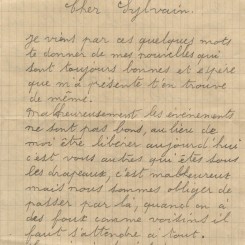 Cher Sylvain.
Je vient par ces quelques mots
te donner de mes nouvelles qui
sont toujours bonnes et espère
que m'a présente t'en trouve
de même.
Malheureusement les évènements
ne sont pas bons, au lieu de
moi être libérer aujourd'hui
c'est vous autres qui êtes sous
les drapeaux, c'est malheureux
mais nous sommes obliger de
passer par là, quand on à
des foux comme voisins il
faut s'attendre à tout.